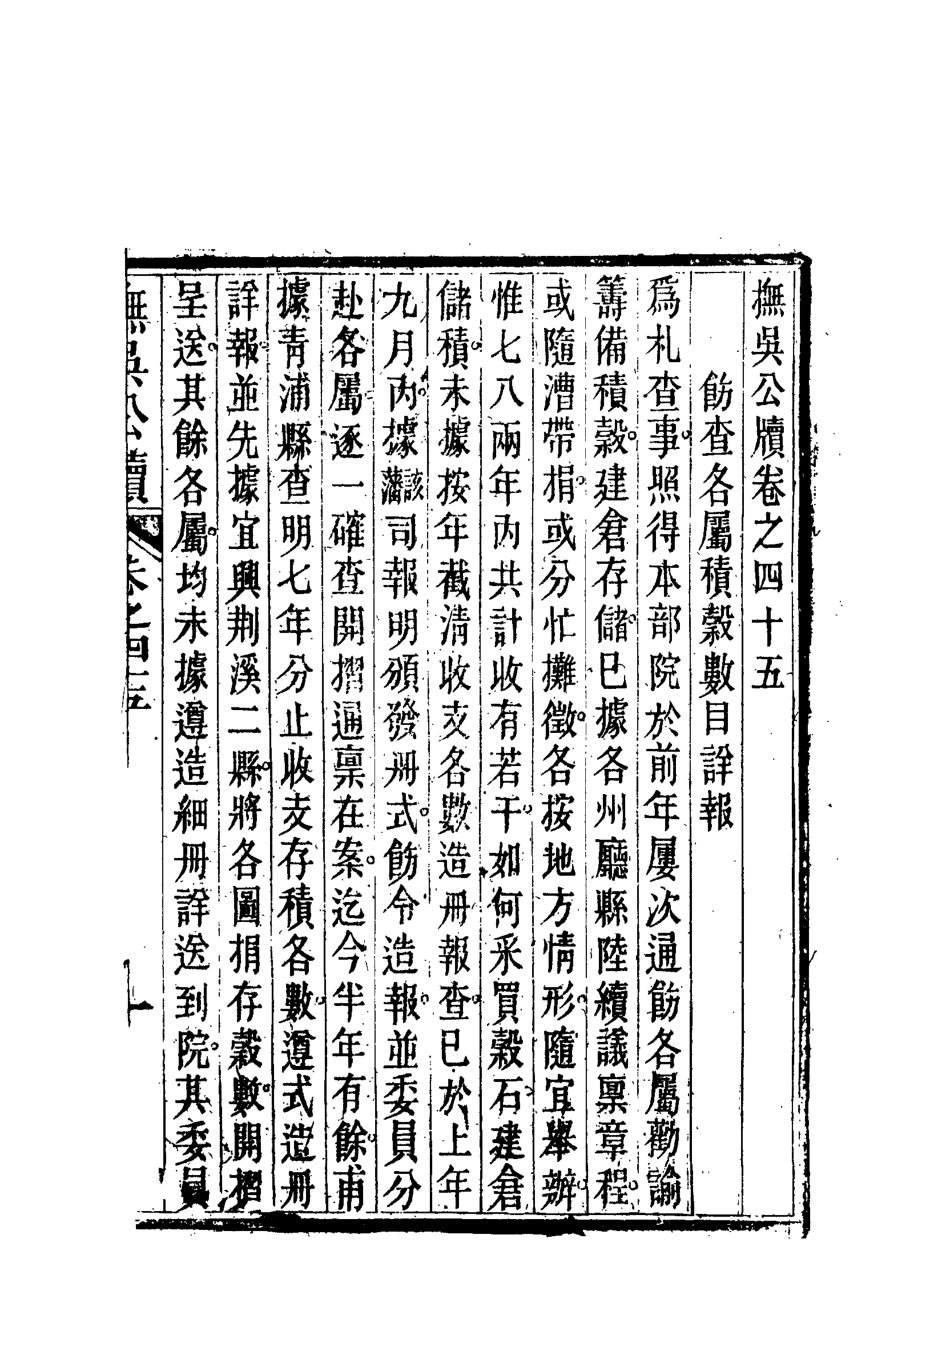 撫吳公牘卷之四十五
飭查各屬積穀數目詳報
爲札查事。照得本部院於前年屢次通飭各屬勸諭
籌備積穀。建倉存儲。已據各州廳縣陸續議稟章程。
或隨漕帶捐。或分忙攤徵。各按地方情形。隨宜舉辦。
惟七八兩年内共計收有若干。如何采買穀石。建倉
儲積。未據按年截清收支各數。造册報查。已於上年
九月内。據該藩司報明頒發册式。飭令造報。並委員分
赴各屬逐一確查開摺通稟在案。迄今半年有餘。甫
據青浦縣查明七年分止收支存積各數。遵式造册
詳報。並先據宜興荆溪二縣。將各圖捐存穀數。開摺
呈送。其餘各屬。均未據遵造細册詳送到院。其委員
撫吳公牘 卷之四十五 一